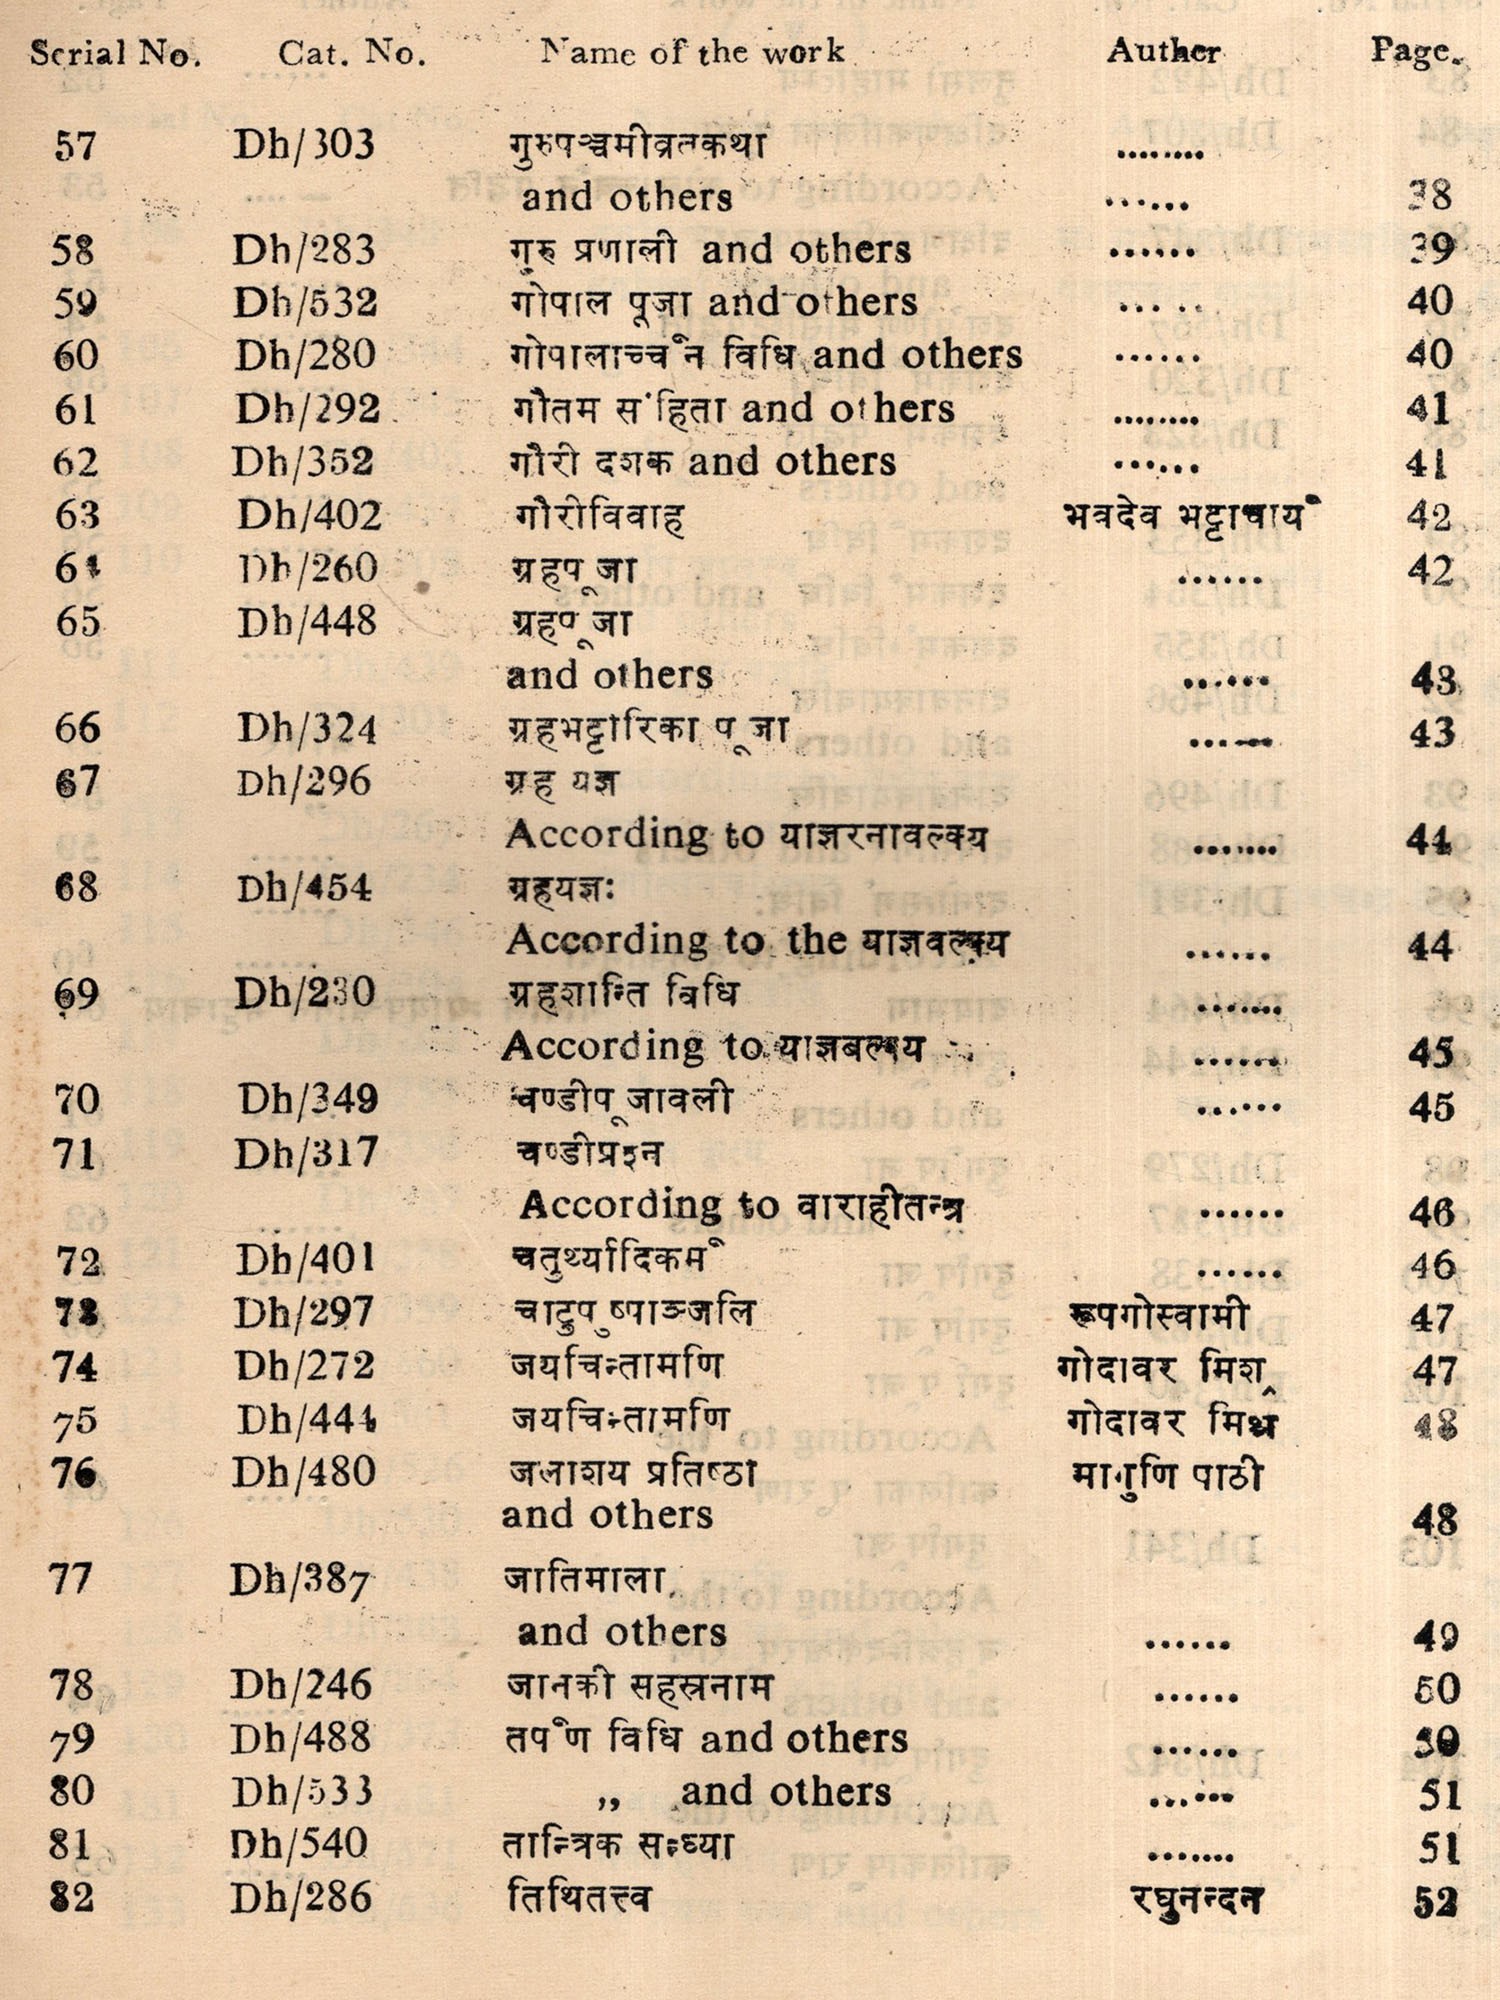 Serial No. Cat. No. Name of the work Auther Page.
57 Dh/303 गुरुपञ्चमीव्रतकथा ........
and others ...... 38
58 Dh/283 गुरु प्रणाली and others ...... 39
59 Dh/532 गोपाल पूजा and others ... .. 40
60 Dh/280 गोपालार्च्चन विधि and others ...... 40
61 Dh/292 गौतम संहिता and others ........ 41
62 Dh/352 गौरी दशक and others ...... 41
63 Dh/402 गौरीविवाह भवदेव भट्टाचार्य 42
64 Dh/260 ग्रहपूजा ...... 42
65 Dh/448 ग्रहपूजा
and others ...... 43
66 Dh/324 ग्रहभट्टारिका पूजा ...... 43
67 Dh/296 ग्रह यज्ञ
According to याज्ञरनावल्क्य ....... 44
68 Dh/454 ग्रहयज्ञः
According to the याज्ञवल्क्य ...... 44
69 Dh/230 ग्रहशान्ति विधि .......
According to याज्ञबल्क्य ....... 45
70 Dh/349 चण्डीपूजावली ...... 45
71 Dh/317 चण्डीप्रश्न
According to वाराहीतन्त्र ...... 46
72 Dh/401 चतुर्थ्यादिकर्म ...... 46
73 Dh/297 चाटुपुष्पाञ्जलि रूपगोस्वामी 47
74 Dh/272 जयचिन्तामणि गोदावर मिश्र 47
75 Dh/444 जयचिन्तामणि गोदावर मिश्र 48
76 Dh/480 जलाशय प्रतिष्ठा मागुणि पाठी
and others 48
77 Dh/387 जातिमाला
and others ...... 49
78 Dh/246 जानकी सहस्रनाम ...... 50
79 Dh/488 तर्पण विधि and others ...... 50
80 Dh/533 ,, and others ...... 51
81 Dh/540 तान्त्रिक सन्ध्या ....... 51
82 Dh/286 तिथितत्त्व रघुनन्दन 52